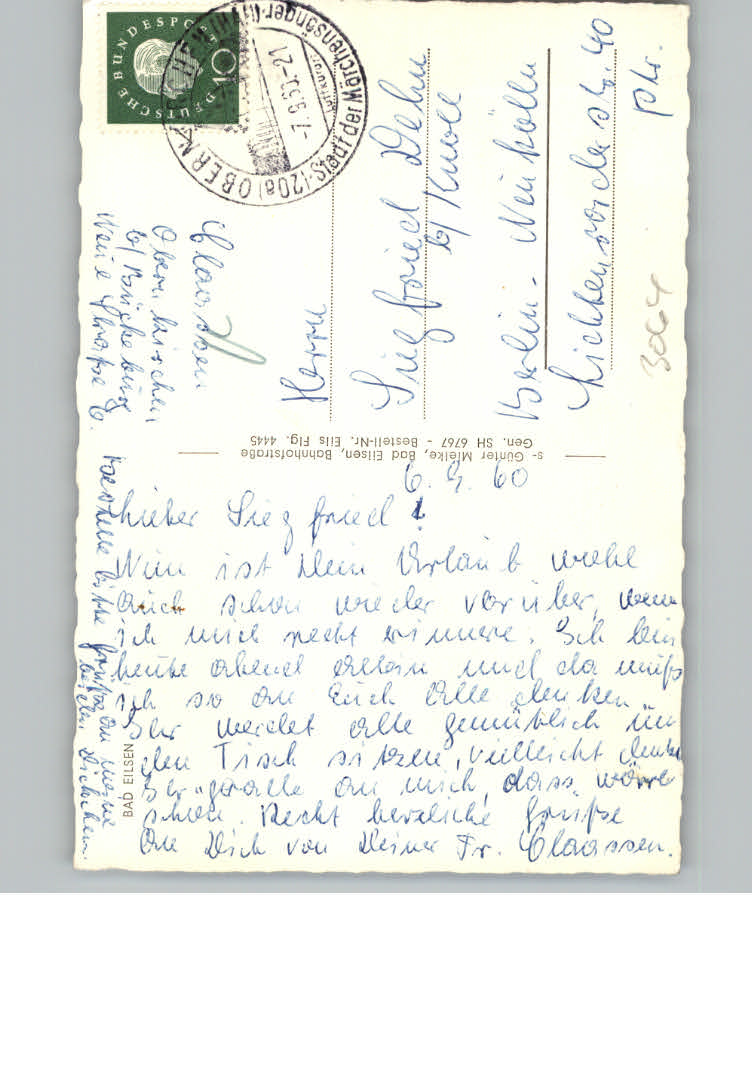 DEUTSCHE BUNDESPOST
10
(20a) OBERNKIRCHEN
Stadt der Märchensänger
Luftkurort
-7.9.60-21
Claassen
Obernkirchen
b/ Bückeburg
Neue Straße 6.
Herrn
Siegfried Dehn
b/ Knoll
Berlin-Neukölln
Lichtenrader str. 40
ptr.
3064
s- Günter Mielke, Bad Eilsen, Bahnhofstraße
Gen. SH 6767 - Bestell-Nr. Eils Flg. 4445
BAD EILSEN
6. 9. 60
Lieber Siegfried!
Nun ist Dein Urlaub wohl
auch schon wieder vorüber, wenn
ich mich recht erinnere. Ich bin
heute abend allein und da muß
ich so an Euch alle denken.
Ihr werdet alle gemütlich um
den Tisch sitzen, vielleicht denkt
Ihr gerade an mich, dass wäre
schön. Recht herzliche Grüße
an Dich von Deiner Fr. Claassen.
bitte Grüße an meine
beiden